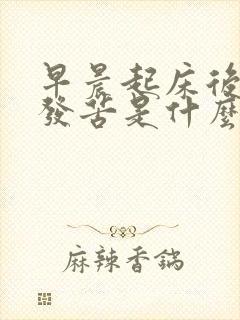 早晨起床後
發苦是什麼
麻辣香鍋